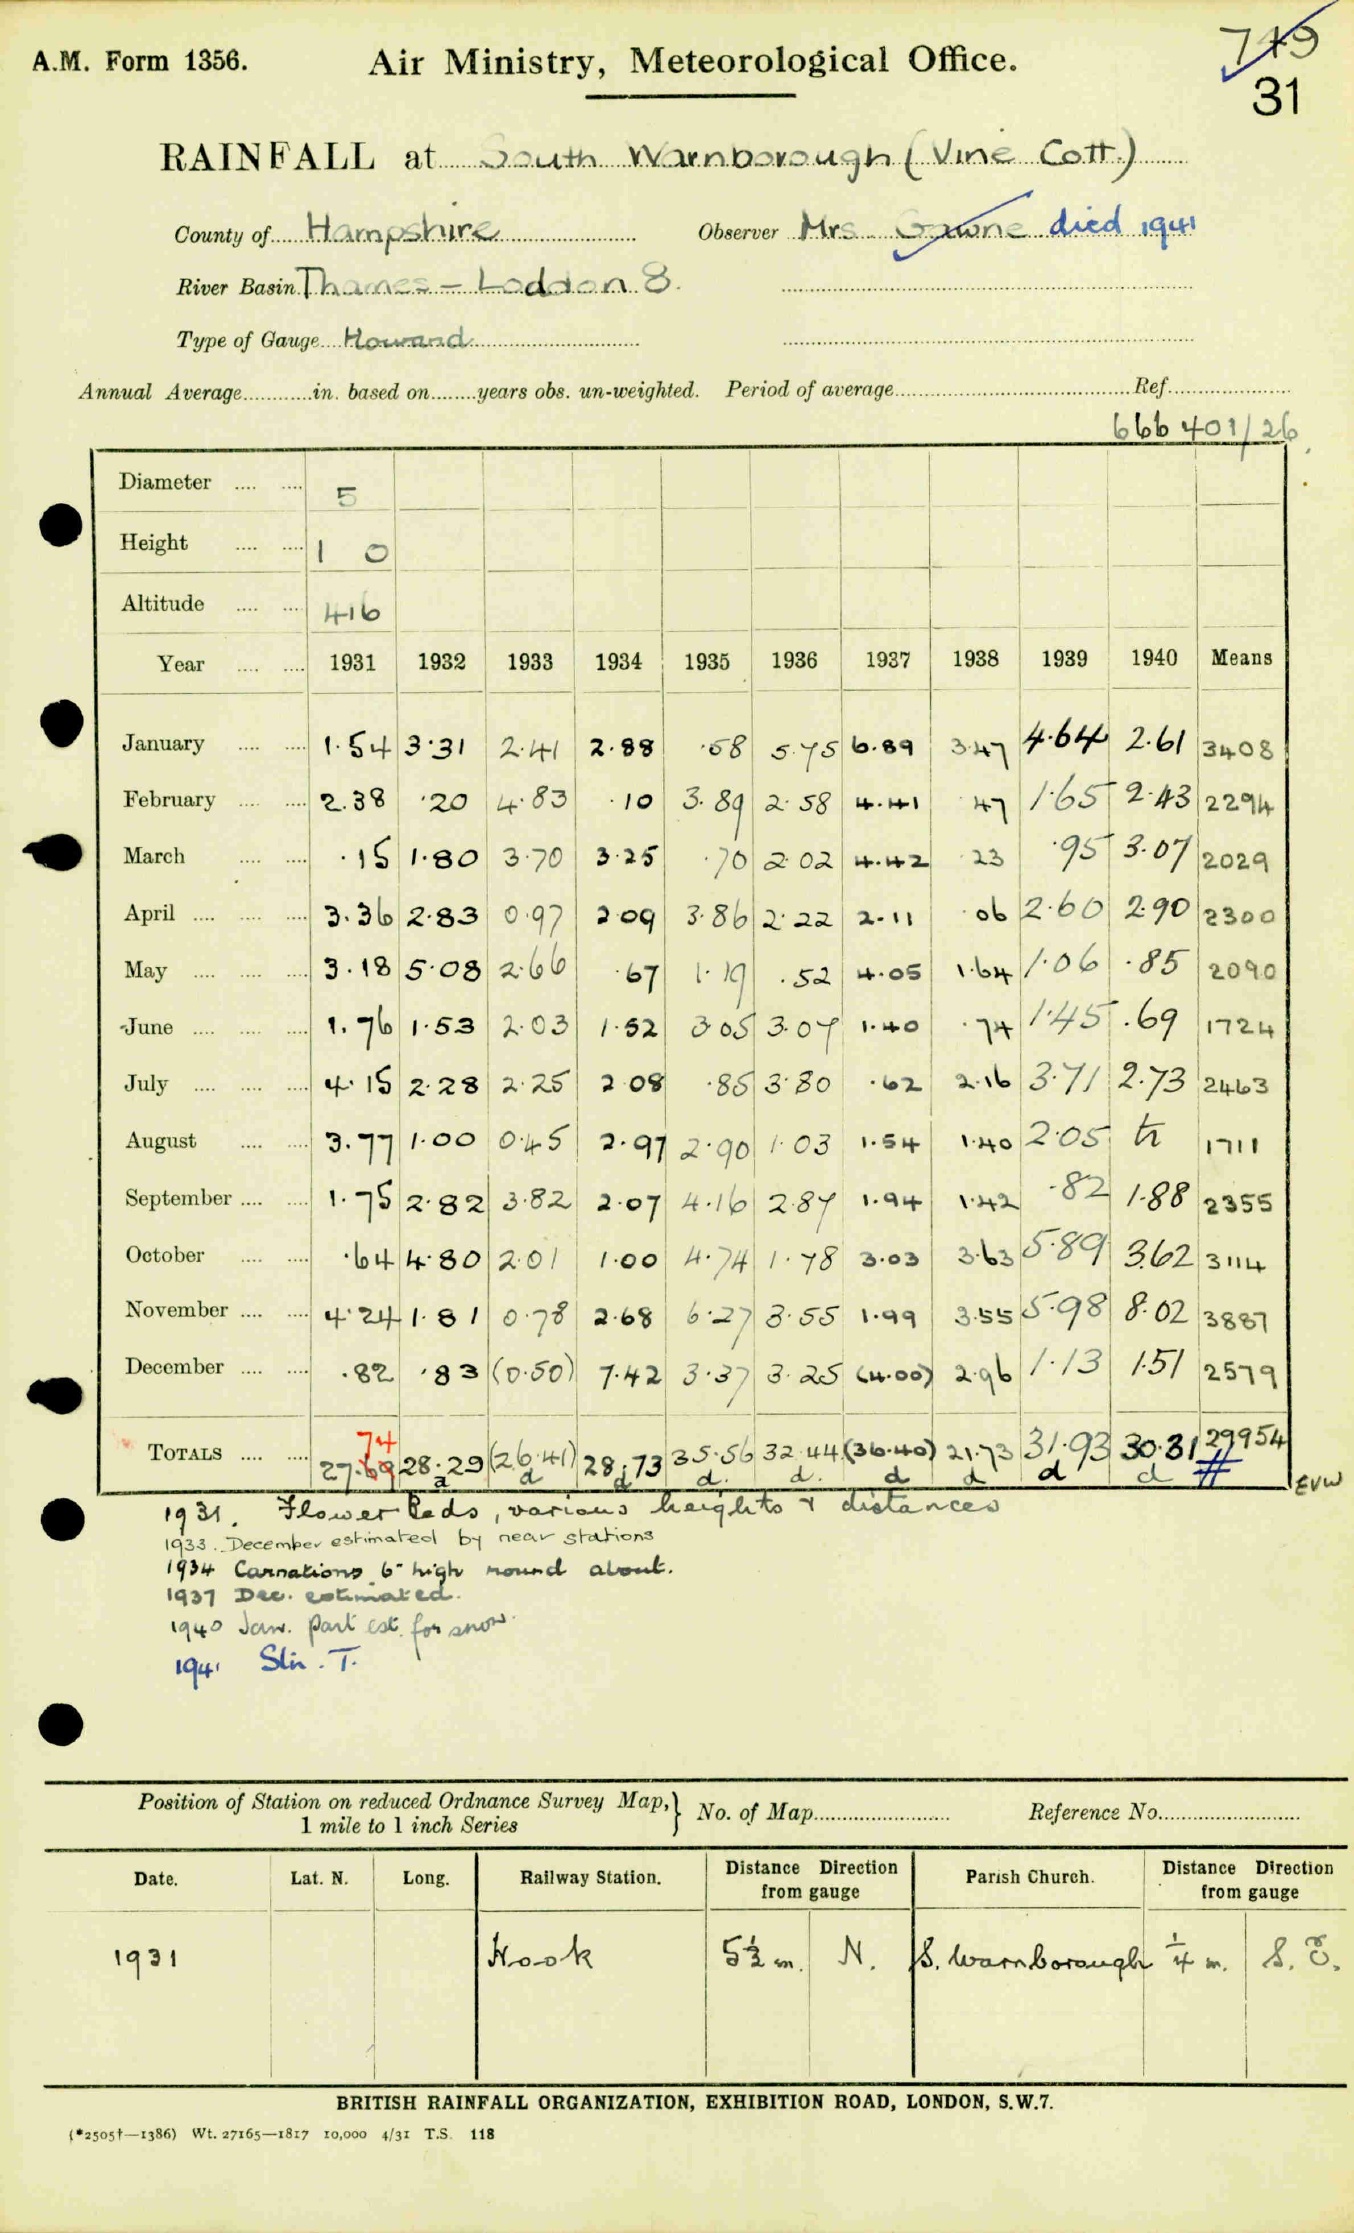 A.M. Form 1356. Air Ministry, Meteorological Office. 749
31
RAINFALL at South Warnborough (Vine Cott.)
County of Hampshire Observer Mrs Gawne died 1941
River Basin Thames - Loddon 8.
Type of Gauge Howard
Annual Average in. based on years obs. un-weighted. Period of average Ref.
666 401/26
Diameter 5
Height 1 0
Altitude 416
Year 1931 1932 1933 1934 1935 1936 1937 1938 1939 1940 Means
January 1.54 3.31 2.41 2.88 .58 5.75 6.89 3.47 4.64 2.61 3408
February 2.38 .20 4.83 .10 3.89 2.58 4.41 .47 1.65 2.43 2294
March .15 1.80 3.70 3.25 .70 2.02 4.42 .23 .95 3.07 2029
April 3.36 2.83 0.97 2.09 3.86 2.22 2.11 .06 2.60 2.90 2300
May 3.18 5.08 2.66 .67 1.19 .52 4.05 1.64 1.06 .85 2090
June 1.76 1.53 2.03 1.52 3.05 3.07 1.40 .74 1.45 .69 1724
July 4.15 2.28 2.25 2.08 .85 3.80 .62 2.16 3.71 2.73 2463
August 3.77 1.00 0.45 2.97 2.90 1.03 1.54 1.40 2.05 tr 1711
September 1.75 2.82 3.82 2.07 4.16 2.87 1.94 1.42 .82 1.88 2355
October .64 4.80 2.01 1.00 4.74 1.78 3.03 3.63 5.89 3.62 3114
November 4.24 1.81 0.78 2.68 6.27 3.55 1.99 3.55 5.98 8.02 3887
December .82 .83 (0.50) 7.42 3.37 3.25 (4.00) 2.96 1.13 1.51 2579
74
TOTALS 27.69 28.29 (26.41) 28.73 35.56 32.44 (36.40) 21.73 31.93 30.31 29954
a d d d. d. d d d d #
EVW
1931. Flower beds, various heights & distances
1933. December estimated by near stations
1934 Carnations 6" high round about.
1937 Dec. estimated.
1940 Jan. part est. for snow.
1941 Stn. T.
Position of Station on reduced Ordnance Survey Map, } No. of Map Reference No.
1 mile to 1 inch Series
Date. Lat. N. Long. Railway Station. Distance Direction from gauge Parish Church. Distance Direction from gauge
1931 Hook 5½ m. N. S. Warnborough ¼ m. S. E.
BRITISH RAINFALL ORGANIZATION, EXHIBITION ROAD, LONDON, S.W.7.
(*2505†—1386) Wt. 27165—1817 10,000 4/31 T.S. 118